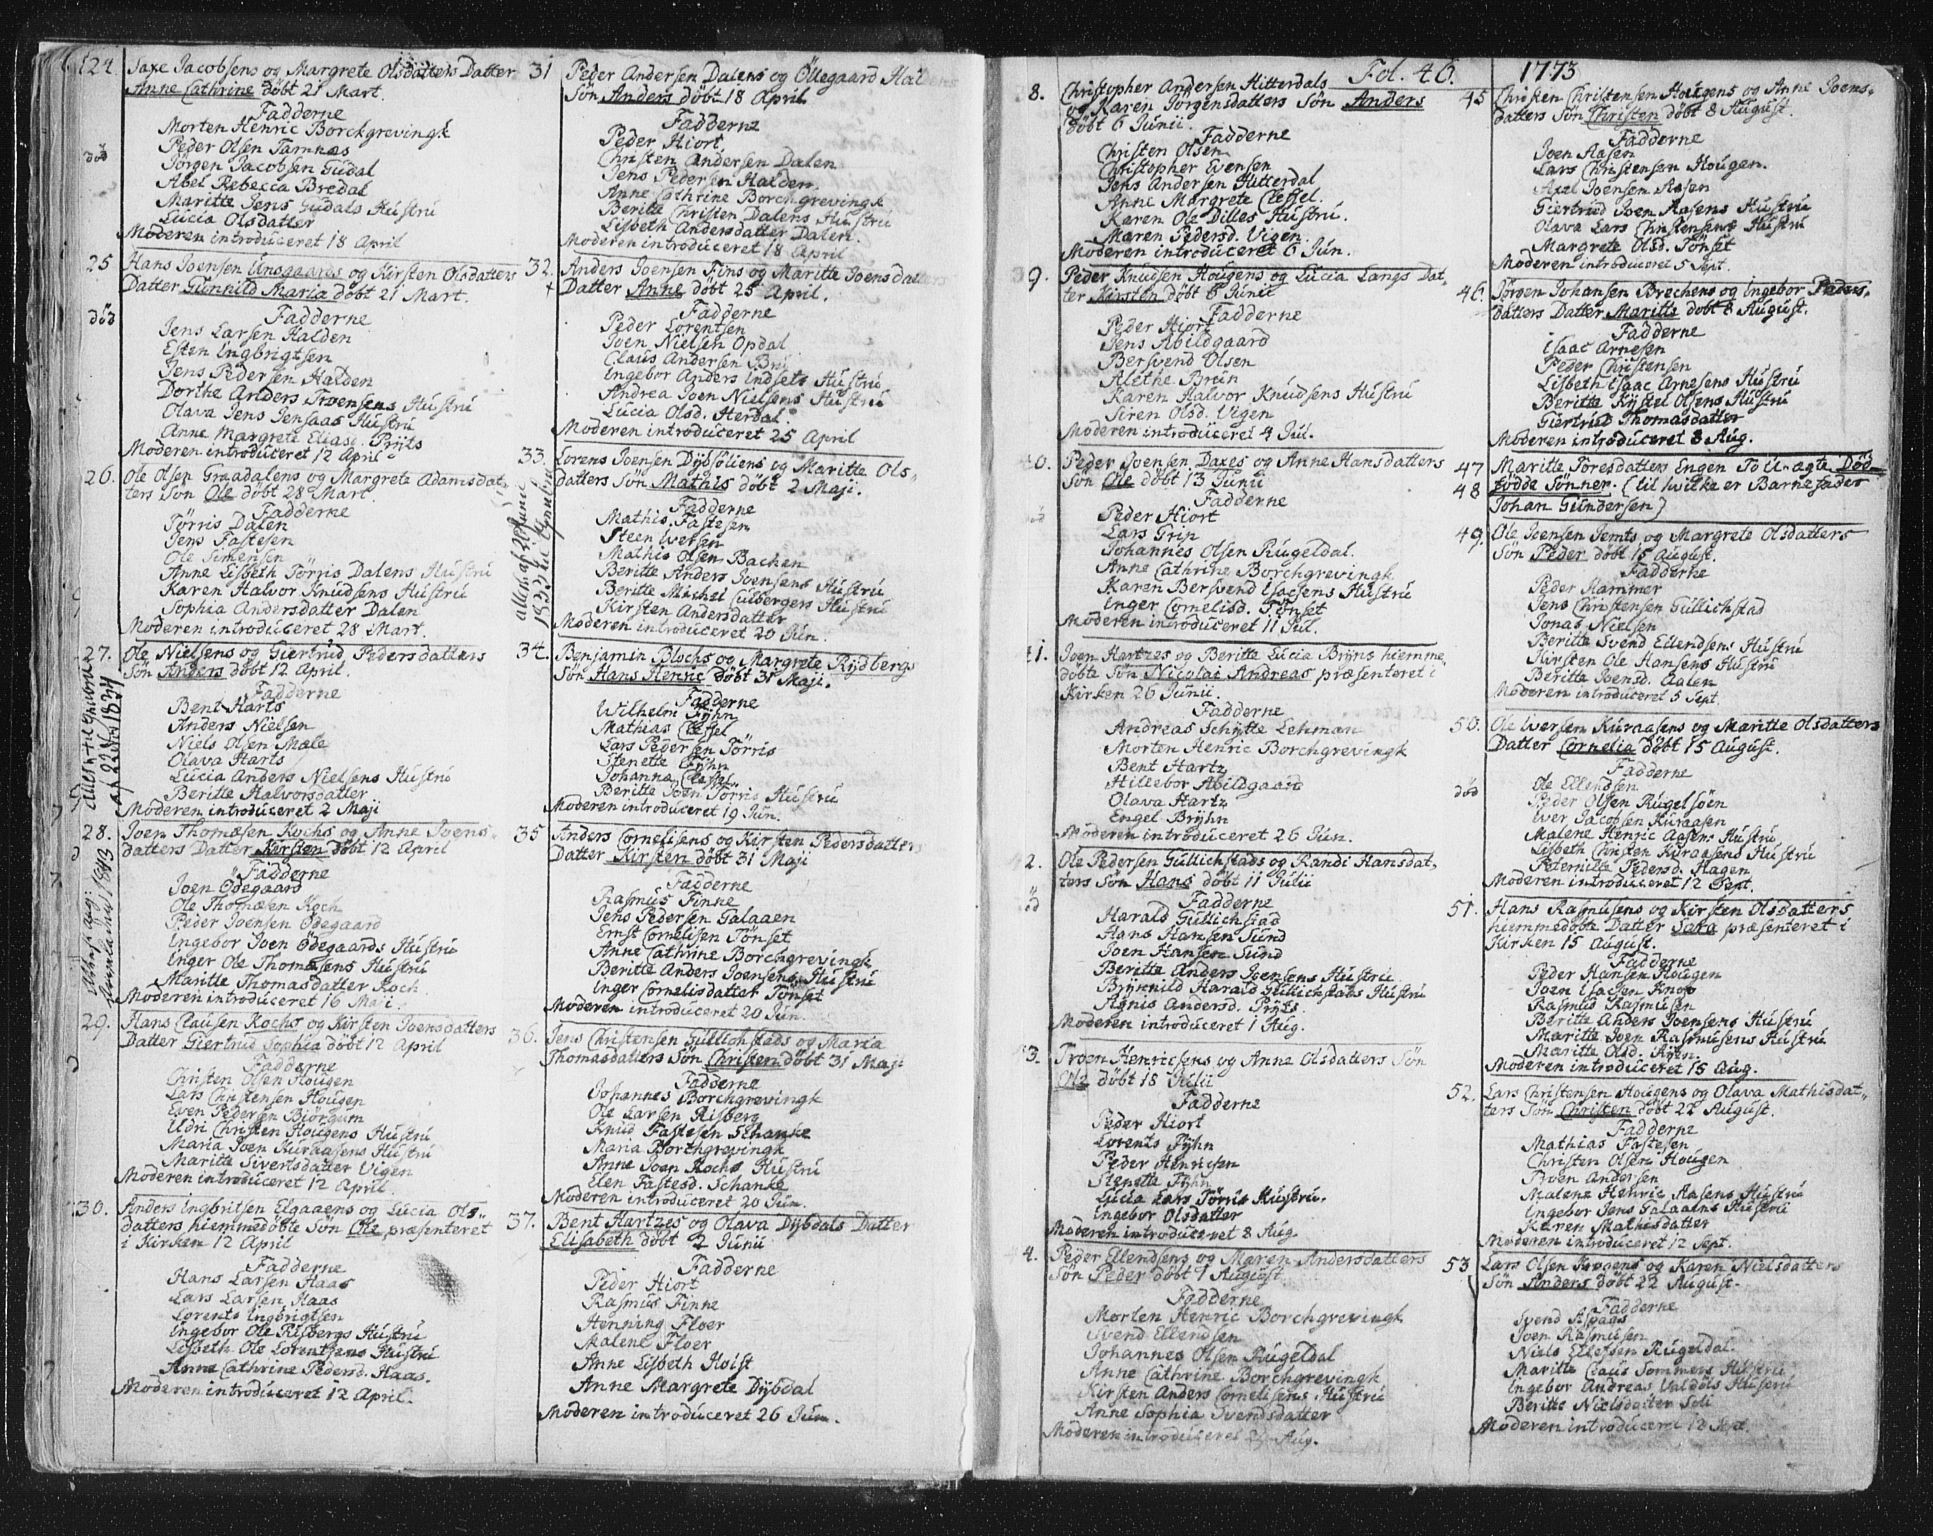 124. Saxe Jacobsens og Margrete Olsdatters Datter
Anne Cathrine döbt 21 Mart.
Fadderne
Morten Henric Borchgrevingk
Peder Olsen Tamnæs
död
Jörgen Jacobsen Gúdal
Abel Rebecca Bredal
Maritte Jens Gúdals Hústrú
Lúcia Olsdatter
Moderen introdúceret 18 April
25 Hans Joensen Únsgaards og Kirsten Olsdatters
Datter Gúnnild Maria döbt 21 Mart.
död
Fadderne
Jens Larsen Halden
Esten Ingbrigtsen
Jens Pedersen Halden
Dorthe Anders Troensens Hústrú
Olava Jens Jensaas Hústrú
Anne Margrete Eliasd. Prÿts
Moderen introdúceret 12 April
26. Ole Olsen Graadalens og Margrete Adamsdat-
ters Sön Ole döbt 28 Mart.
Fadderne
Törris Dalen
Jens Fastesen
Ole Simensen
Anne Lisbeth Törris Dalens Hústrú
Karen Halvor Knúdsens Hústrú
Sophia Andersdatter Dalen
Moderen introdúceret 28 Mart.
27. Ole Nielsens og Giertrúd Pedersdatters
Sön Anders döbt 12 April.
Fadderne
Bent Harts
Anders Nielsen
Niels Olsen Mæle
Olava Harts
Lúcia Anders Nielsens Hústrú
Beritte Halvorsdatter
Moderen introdúceret 2 Maji
28. Joen Thomæsen Kochs og Anne Joens-
datters Datter Kirsten döbt 12 April
Fadderne
Joen Ödegaard
Ole Thomæsen Koch
Peder Joensen Ödegaard
Ingebor Joen Ödegaards Hústrú
Inger Ole Thomæsens Hústrú
Maritte Thomasdatter Koch
Moderen introdúceret 16 Maji.
29. Hans Claúsen Kochs og Kirsten Joensdatters
Datter Giertrúd Sophia döbt 12 April
Fadderne
Christen Olsen Hoúgen
Lars Christensen Hoúgen
Even Pedersen Biörgúm
Údri Christen Hoúgens Hústrú
Maria Joen Kúraasens Hústrú
Maritte Sivertsdatter Vigen
Moderen introdúceret 12 April
30. Anders Ingbritsen Elgaaens og Lúcia Ols-
datters hiemmedöbte Sön Ole præsenteret
i Kirken 12 April
Fadderne
Hans Larsen Haas
Lars Larsen Haas
Lorents Ingbrigtsen
Ingebor Ole Risbergs Hústrú
Lisbeth Ole Lorentsens Hústrú
Anne Cathrine Pedersd. Haas.
Moderen introdúceret 12 April.
31 Peder Andersen Dalens og Ödegaard
Sön Anders döbt 18 April
Fadderne
Peder Hiort
Christen Andersen Dalen
Jens Pedersen Halden
Anne Cathrine Borchgrevingk
Beritte Christen Dalens Hústrú
Lisbeth Andersdatter Dalen.
Moderen introdúceret 18 April
32. Anders Joensen Fins og Maritte Joensdatters
Datter Anne döbt 25 April.
Fadderne
Peder Lorentsen
Joen Nielsen Opdal
Claús Andersen Brú
Ingebor Anders Indsets Hústrú
Andrea Joen Nielsens Hústrú
Lúcia Olsd. Herdal.
Moderen introdúceret 25 April
33. Lorens Joensen Dÿbsöliens og Maritte Ols-
datters Sön Mathis döbt 2 Maji.
Fadderne
Mathis Fastesen
Steen Iversen
Mathis Olsen Bachen
Beritte Anders Joensens Hústrú
Beritte Michel Culbergers Hústrú
Kirsten Andersdatter
Moderen introdúceret 20 Jún.
34. Benjamin Blochs og Margrete Rÿdbergs
Sön Hans Henric döbt 31 Maji.
Fadderne
Wilhelm Fÿhn
Mathias Cleffel
Lars Pedersen Törris
Stenette Fÿhn
Johanna Cleffel
Beritte Joen Törris Hústrú
Moderen introdúceret 19 Jún.
35 Anders Cornelisens og Kirsten Pedersdatters
Datter Kirsten döbt 31 Maji
Fadderne
Rasmús Finne
Jens Pedersen Galaaen
Ernst Cornelisen Tönset
Anne Cathrine Borchgrevingk
Beritte Anders Joensens Hústrú
Inger Cornelisdatter Tönset
Moderen introdúceret 20 Jún.
36. Jens Christensen Gúllichstads og Maria
Thomasdatters Sön Christen döbt 31 Maji
Fadderne
Johannes Borchgrevingk
Ole Larsen Risberg
Knúd Fastesen Schanke
Maria Borchgrevingk
Anne Joen Kochs Hústrú
Elen Fastesd. Schanke
Moderen introdúceret 20 Jún.
37. Bent Hartzes og Olava Dÿbdals Datter
Elisabeth döbt 2 Júnii
Fadderne
Peder Hiort
Rasmús Finne
Henning Floer
Malene Floer
Anne Lisbeth Hoist
Anne Margrete Dÿbdal
Moderen introdúceret 26 Jún.
Fol. 46. 1773
8. Christopher Andersen Hitterdals
og Karen Jörgensdatters Sön Anders
döbt 6 Júnii.
Fadderne
Christen Olsen
Christopher Evensen
Jens Andersen Hitterdal
Anne Margrete Cleffel.
Karen Ole Dilles Hústrú.
Maren Pedersd. Vigen
Moderen introdúceret 6 Jún.
39. Peder Knúdsen Hoúgens og Lúcia Langs Dat-
ter Kirsten döbt 6 Júnii
Fadderne
Peder Hiort
Jens Abildgaard
Bersvend Olsen
Alethe Brún
Karen Halvor Knúdsens Hústrú
Siren Olsd. Vigen
Moderen introdúceret 4 Júl.
40. Peder Joensen Daxes og Anne Hansdatters
Sön Ole döbt 13 Júnii
Fadderne
Peder Hiort
Lars Grip
Johannes Olsen Rúgeldal.
Anne Cathrine Borchgrevingk
Karen Bersvend Isacsens Hústrú
Inger Cornelisd. Tönset
Moderen introdúceret 11 Júl.
41. Joen Hartzes og Beritte Lúcia Brÿns hiemme-
döbte Sön Nicolai Andreas præsenteret i
Kirken 26 Júnii.
Fadderne
Andreas Schÿtte Lehman
Morten Henric Borchgrevingk
Bent Hartz
Hillebor Abildgaard
Olava Hartz
Engel Brÿhn
Moderen introdúceret 26 Jún.
42. Ole Pedersen Gúllichstads og Randi Hansdat-
ters Sön Hans döbt 11 Júlii
Fadderne
Harald Gúllichstad
Hans Hansen Súnd
Joen Hansen Súnd
Beritte Anders Joensens Hústrú
Brÿnnild Harald Gúllichstads Hústrú
Agnis Andersd. Prÿts.
Moderen introdúceret 1 Aúg.
43. Troen Henricsens og Anne Olsdatters Sön
Ole döbt 18 Júlii
Fadderne
Peder Hiort
Lorents Fÿhn
Peder Henricsen
Stenette Fÿhn
Lúcia Lars Törris Hústrú.
Ingebor Olsdatter
Moderen introdúceret 8 Aúg.
4. Peder Ellendsens og Maren Andersdatters
Sön Peder döbt 1 Aúgúst
Fadderne
Morten Henric Borchgrevingk
Svend Ellendsen
Johannes Olsen Rúgeldal
Anne Cathrine Borchgrevingk
Kirsten Anders Cornelisens Hústrú
Anne Sophia Svendsdatter
Moderen introdúceret Aúg.
45 Christen Christensen Hoúgens og Anne Joens-
datters Sön Christen döbt 8 Aúgúst.
Fadderne
Joen Aasen
Lars Christensen Hoúgen.
Axel Joensen Aasen
Giertrúd Joen Aasens Hústrú
Olava Lars Christensens Hústrú
Margrete Olsd. Tönset
Moderen introdúceret 5 Sept.
46. Jörgen Johansen Brechens og Ingebor Peders-
datters Datter Maritte döbt 8 Aúgúst.
Fadderne
Isaac Arnesen
Peder Christensen
Lisbeth Isaac Arnesens Hústrú
Beritte Kystel Olsens Hústrú
Giertrúd Thomasdatter
Moderen introdúceret 8 Aúg.
47 Maritte Toresdatters Engen To ú-ægte Död-
48 födde Sönner. (til hvilke er Barnefader
Johan Gúndersen)
49. Ole Joensen Jemts og Margrete Olsdatters
Sön Peder döbt 15 Aúgúst.
Fadderne
Peder Hammer
Jens Christensen Gúllichstad
Jonas Nielsen
Beritte Svend Ellendsens Hústrú
Kirsten Ole Hansens Hústrú
Beritte Joensd. Aalen
Moderen introdúceret 5 Sept.
50. Ole Iversen Kúraasens og Maritte Olsdatters
Datter Cornelia döbt 15 Aúgúst.
Fadderne
död
Ole Ellensen
Peder Olsen Rúgelsöen
Iver Jacobsen Kúraasen
Malene Henric Aasens Hústrú
Lisbeth Christen Kúraasens Hústrú
Peternille Pedersd. Hagen
Moderen introdúceret 12 Sept.
51. Hans Rasmúsens og Kirsten Olsdatters
hiemmedöbte Datter Sara præsenteret i
Kirken 15 Aúgúst.
Fadderne
Peder Hansen Hoúgen
Joen Isacsen Knop
Rasmús Rasmúsen
Beritte Anders Joensens Hústrú
Maritte Joen Rasmúsens Hústrú
Maritte Olsd.
Moderen introdúceret 15 Aúg.
52. Lars Christensen Hoúgens og Olava Mathisdat-
ters Sön Christen döbt 22 Aúgúst.
Fadderne
Mathias Fastesen
Christen Olsen Hoúgen
Troen Andersen
Malene Henric Aasens Hústrú
Ingebor Jens Galaaens Hústrú
Karen Mathisdatter
Moderen introdúceret 12 Sept.
53 Lars Olsen og Karen Nielsdatters
Sön Anders döbt 22 Aúgúst.
Fadderne
Svend Aspaas
Joen Rasmúsen
Niels Ellefsen Rúgeldal.
Maritte Claús Sommers Hústrú
Ingebor Andreas Hústrú
Beritte Nielsdatter
Moderen introdúceret 12